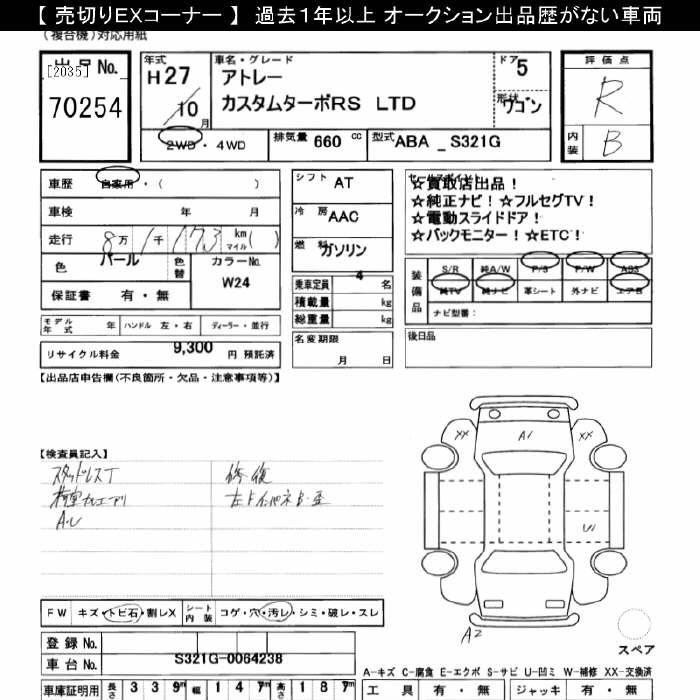 【 売切りEXコーナー 】 過去1年以上 オークション出品歴がない車両
(複合機)対応用紙
出品No.
[2035]
70254
年式
H27
10月
車名・グレード
アトレー
カスタムターボRS LTD
ドア
5
形状
ワゴン
2WD・4WD
排気量 660 cc
型式 ABA _ S321G
評価点
R
内装
B
車歴 自家用・( )
車検 年 月
走行 8万 1千 173 km マイル( )
色 パール
色替
カラーNo.
W24
保証書 有・無
シフト AT
冷房 AAC
燃料 ガソリン
乗車定員 4 名
積載量 kg
総重量 kg
名変期限
月 日
セールスポイント
☆買取店出品!
☆純正ナビ!☆フルセグTV!
☆電動スライドドア!
☆バックモニター!☆ETC!
装備品
S/R 純A/W P/S P/W ABS
純TV 純ナビ 革シート 外ナビ エアB
ナビ型番:
後日品
モデル年式 年 ハンドル 左・右 ディーラー・並行
リサイクル料金 9,300 円 預託済
【出品店申告欄(不良箇所・欠品・注意事項等)】
【検査員記入】
スタッドレスT
修復
A.U
XX
A1
XX
A2
FW キズ・トビ石・割レX
シート内装 コゲ・穴・汚レ・シミ・破レ・スレ
スペア
登録No.
車台No. S321G-0064238
A-キズ C-腐食 E-エクボ S-サビ U-凹ミ W-補修 XX-交換済
車庫証明用 長さ 3 3 9m 幅 1 4 7m 高さ 1 8 7m
工具 有・無 ジャッキ 有・無